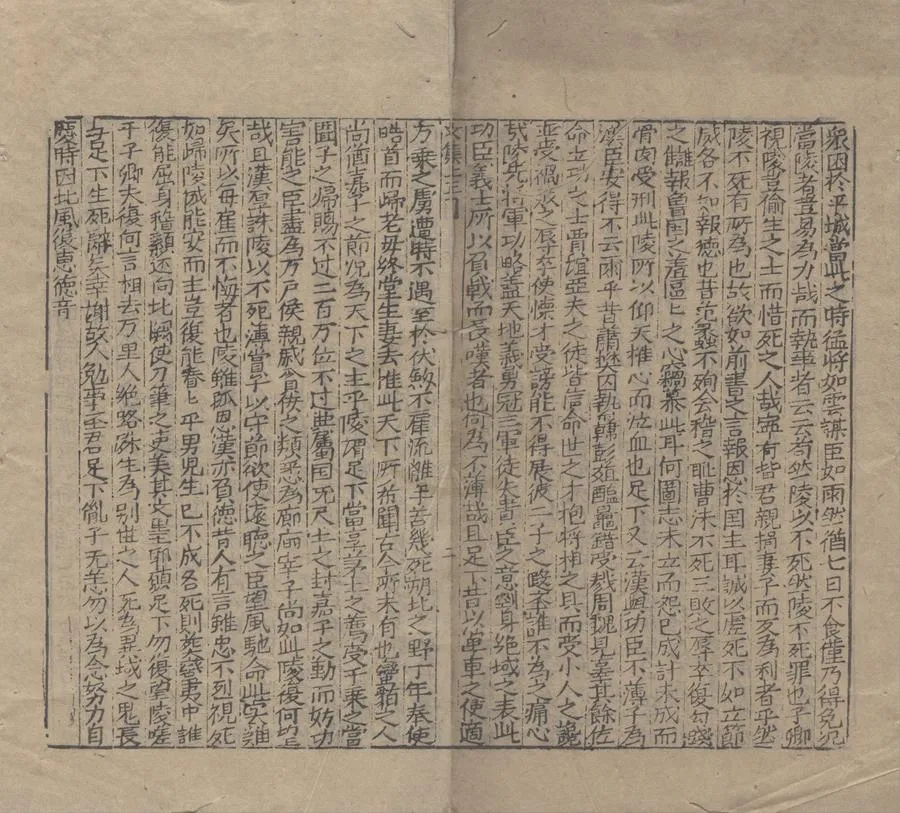 眾困於平城當此之時猛將如雲謀臣如雨然猶七日不食僅乃得免况
當陵者豈易為力哉而執事者云云苟然陵以不死然陵不死罪也子卿
視陵豈偷生之士而惜死之人哉寧有背君親捐妻子而反為利者乎然
陵不死有所為也故欲如前書之言報恩於国主耳誠以虛死不如立節
滅名不如報德也昔范蠡不殉会稽之恥曹沬不死三敗之辱卒復勾踐
之讎報魯国之羞區〻之心竊慕此耳何圖志未立而怨已成計未成而
骨肉受刑此陵所以仰天椎心而泣血也足下又云漢與功臣不薄子為
漢臣安得不云爾乎昔蕭樊囚執韓彭葅醢鼂錯受戮周魏見辜其餘佐
命立功之士賈誼亞夫之徒皆信命世之才抱將相之具而受小人之讒
並受禍敗之辱卒使懷才受謗能不得展彼二子之遐舉誰不為之痛心
哉陵先將軍功略蓋天地義勇冠三軍徒失貴臣之意剄身絶域之表此
功臣義士所以負戟而長嘆者也何為不薄哉且足下昔以單車之使適
文集
万乘之虜遭時不遇至於伏劍不顧流離辛苦幾死朔北之野丁年奉使
皓首而歸老母終堂生妻去帷此天下所希聞古今所未有也蠻貊之人
尚猶嘉子之節况為天下之主乎陵謂足下當享茅土之薦受千乘之賞
聞子之歸賜不过二百万位不过典屬国无尺土之封嘉子之勤而妨功
害能之臣盡為万戶侯親戚貪佞之類悉為廊庙宰子尚如此陵復何望
哉且漢厚誅陵以不死薄賞子以守節欲使遠聽之臣望風馳命此實難
矣所以每顧而不悔者也陵雖孤恩漢亦負德昔人有言雖忠不烈視死
如歸陵誠能安而主豈復能眷〻乎男兒生已不成名死則葬蠻夷中誰
復能屈身稽顙还向北闕使刀筆之吏弄其文墨邪願足下勿復望陵嗟
乎子卿夫復何言相去万里人絶路殊生為別世之人死為異域之鬼長
与足下生死辭矣幸謝故人勉事圣君足下胤子无恙勿以為念努力自
愛時因北風復惠德音